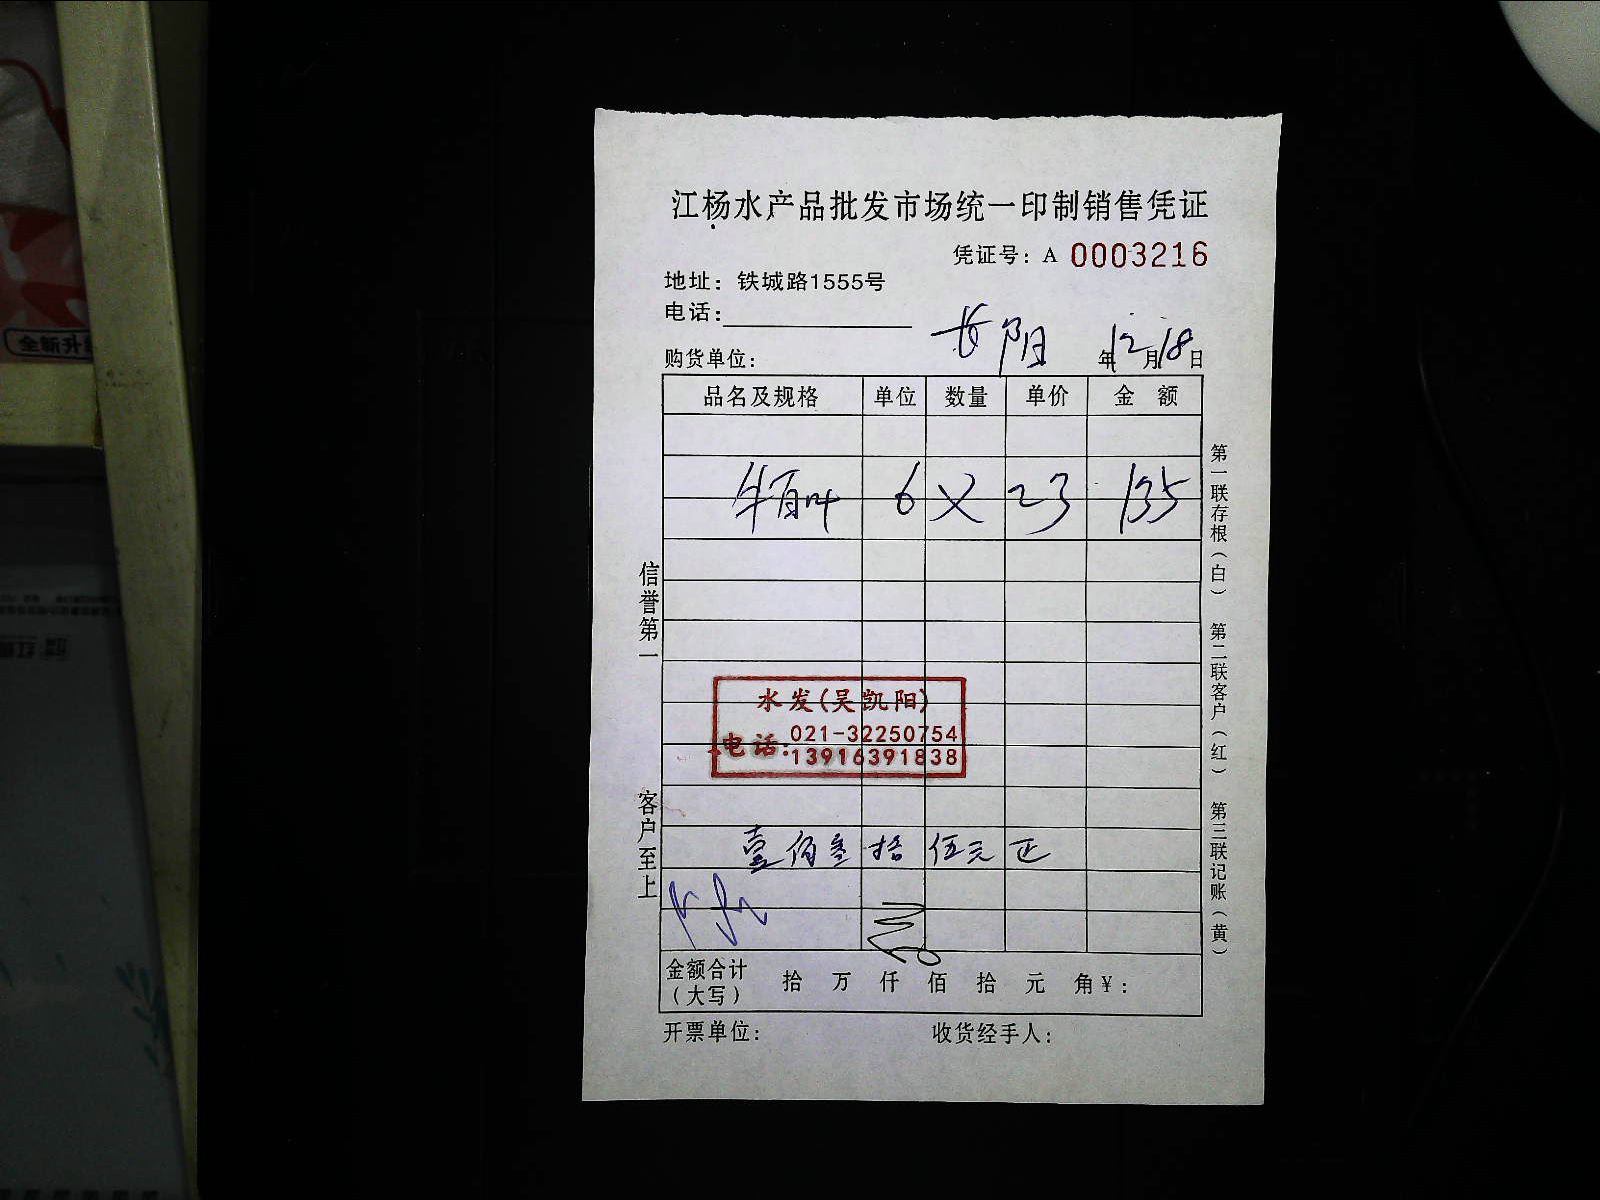 江杨水产品批发市场统一印制销售凭证
凭证号：A 0003216
地址：铁城路1555号
电话：
长阳 年12月18日
购货单位：
品名及规格 单位 数量 单价 金 额
牛百叶 6 × 23 135
水发(吴凯阳)
电话：021-32250754
13916391838
壹佰叁拾伍元正
金额合计（大写） 拾 万 仟 佰 拾 元 角 ¥：
开票单位： 收货经手人：
信誉第一
客户至上
第一联存根（白）
第二联客户（红）
第三联记账（黄）
全新升